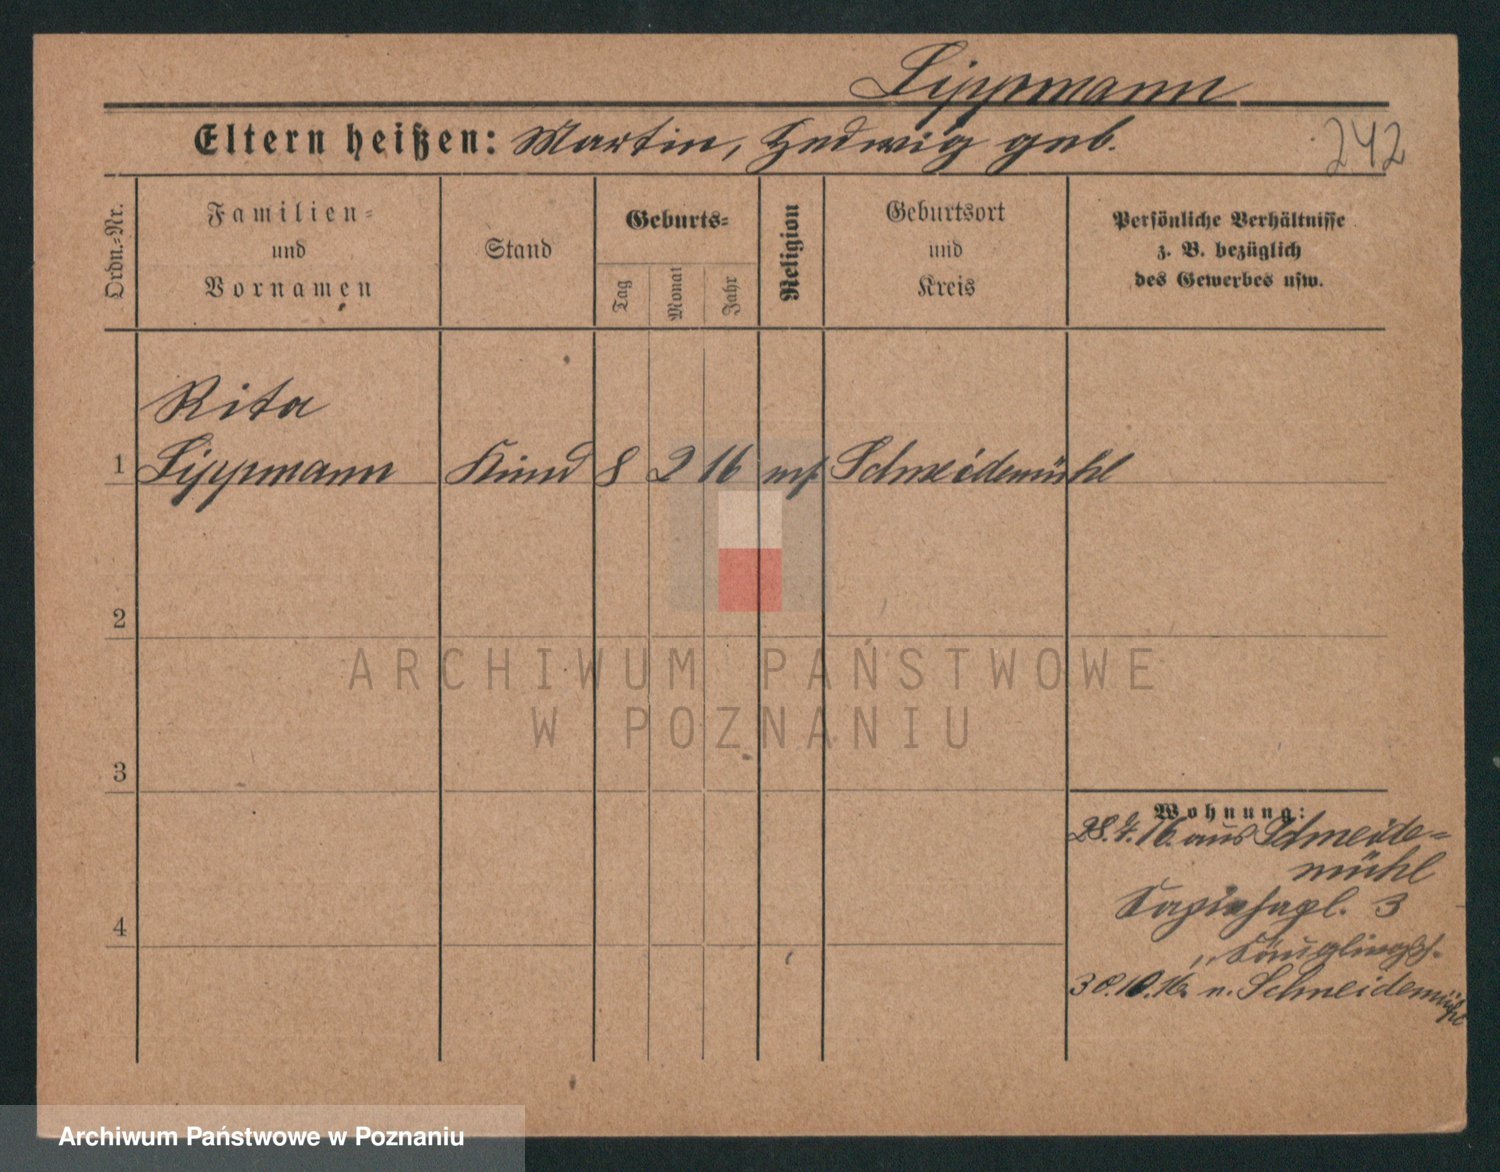 Lippmann
Eltern heißen: Martin, Hedwig geb.
242
Ordn.-Nr.
Familien-
und
Vornamen
Stand
Geburts-
Tag
Monat
Jahr
Religion
Geburtsort
und
Kreis
Persönliche Verhältnisse
z. B. bezüglich
des Gewerbes usw.
Rita
1 Lippmann Kind 8 2 16 Schneidemühl
2
ARCHIWUM PAŃSTWOWE
W POZNANIU
3
Wohnung:
28.4.16. aus Schneide-
mühl
4
3
30.10.16. n. Schneidemühl
Archiwum Państwowe w Poznaniu